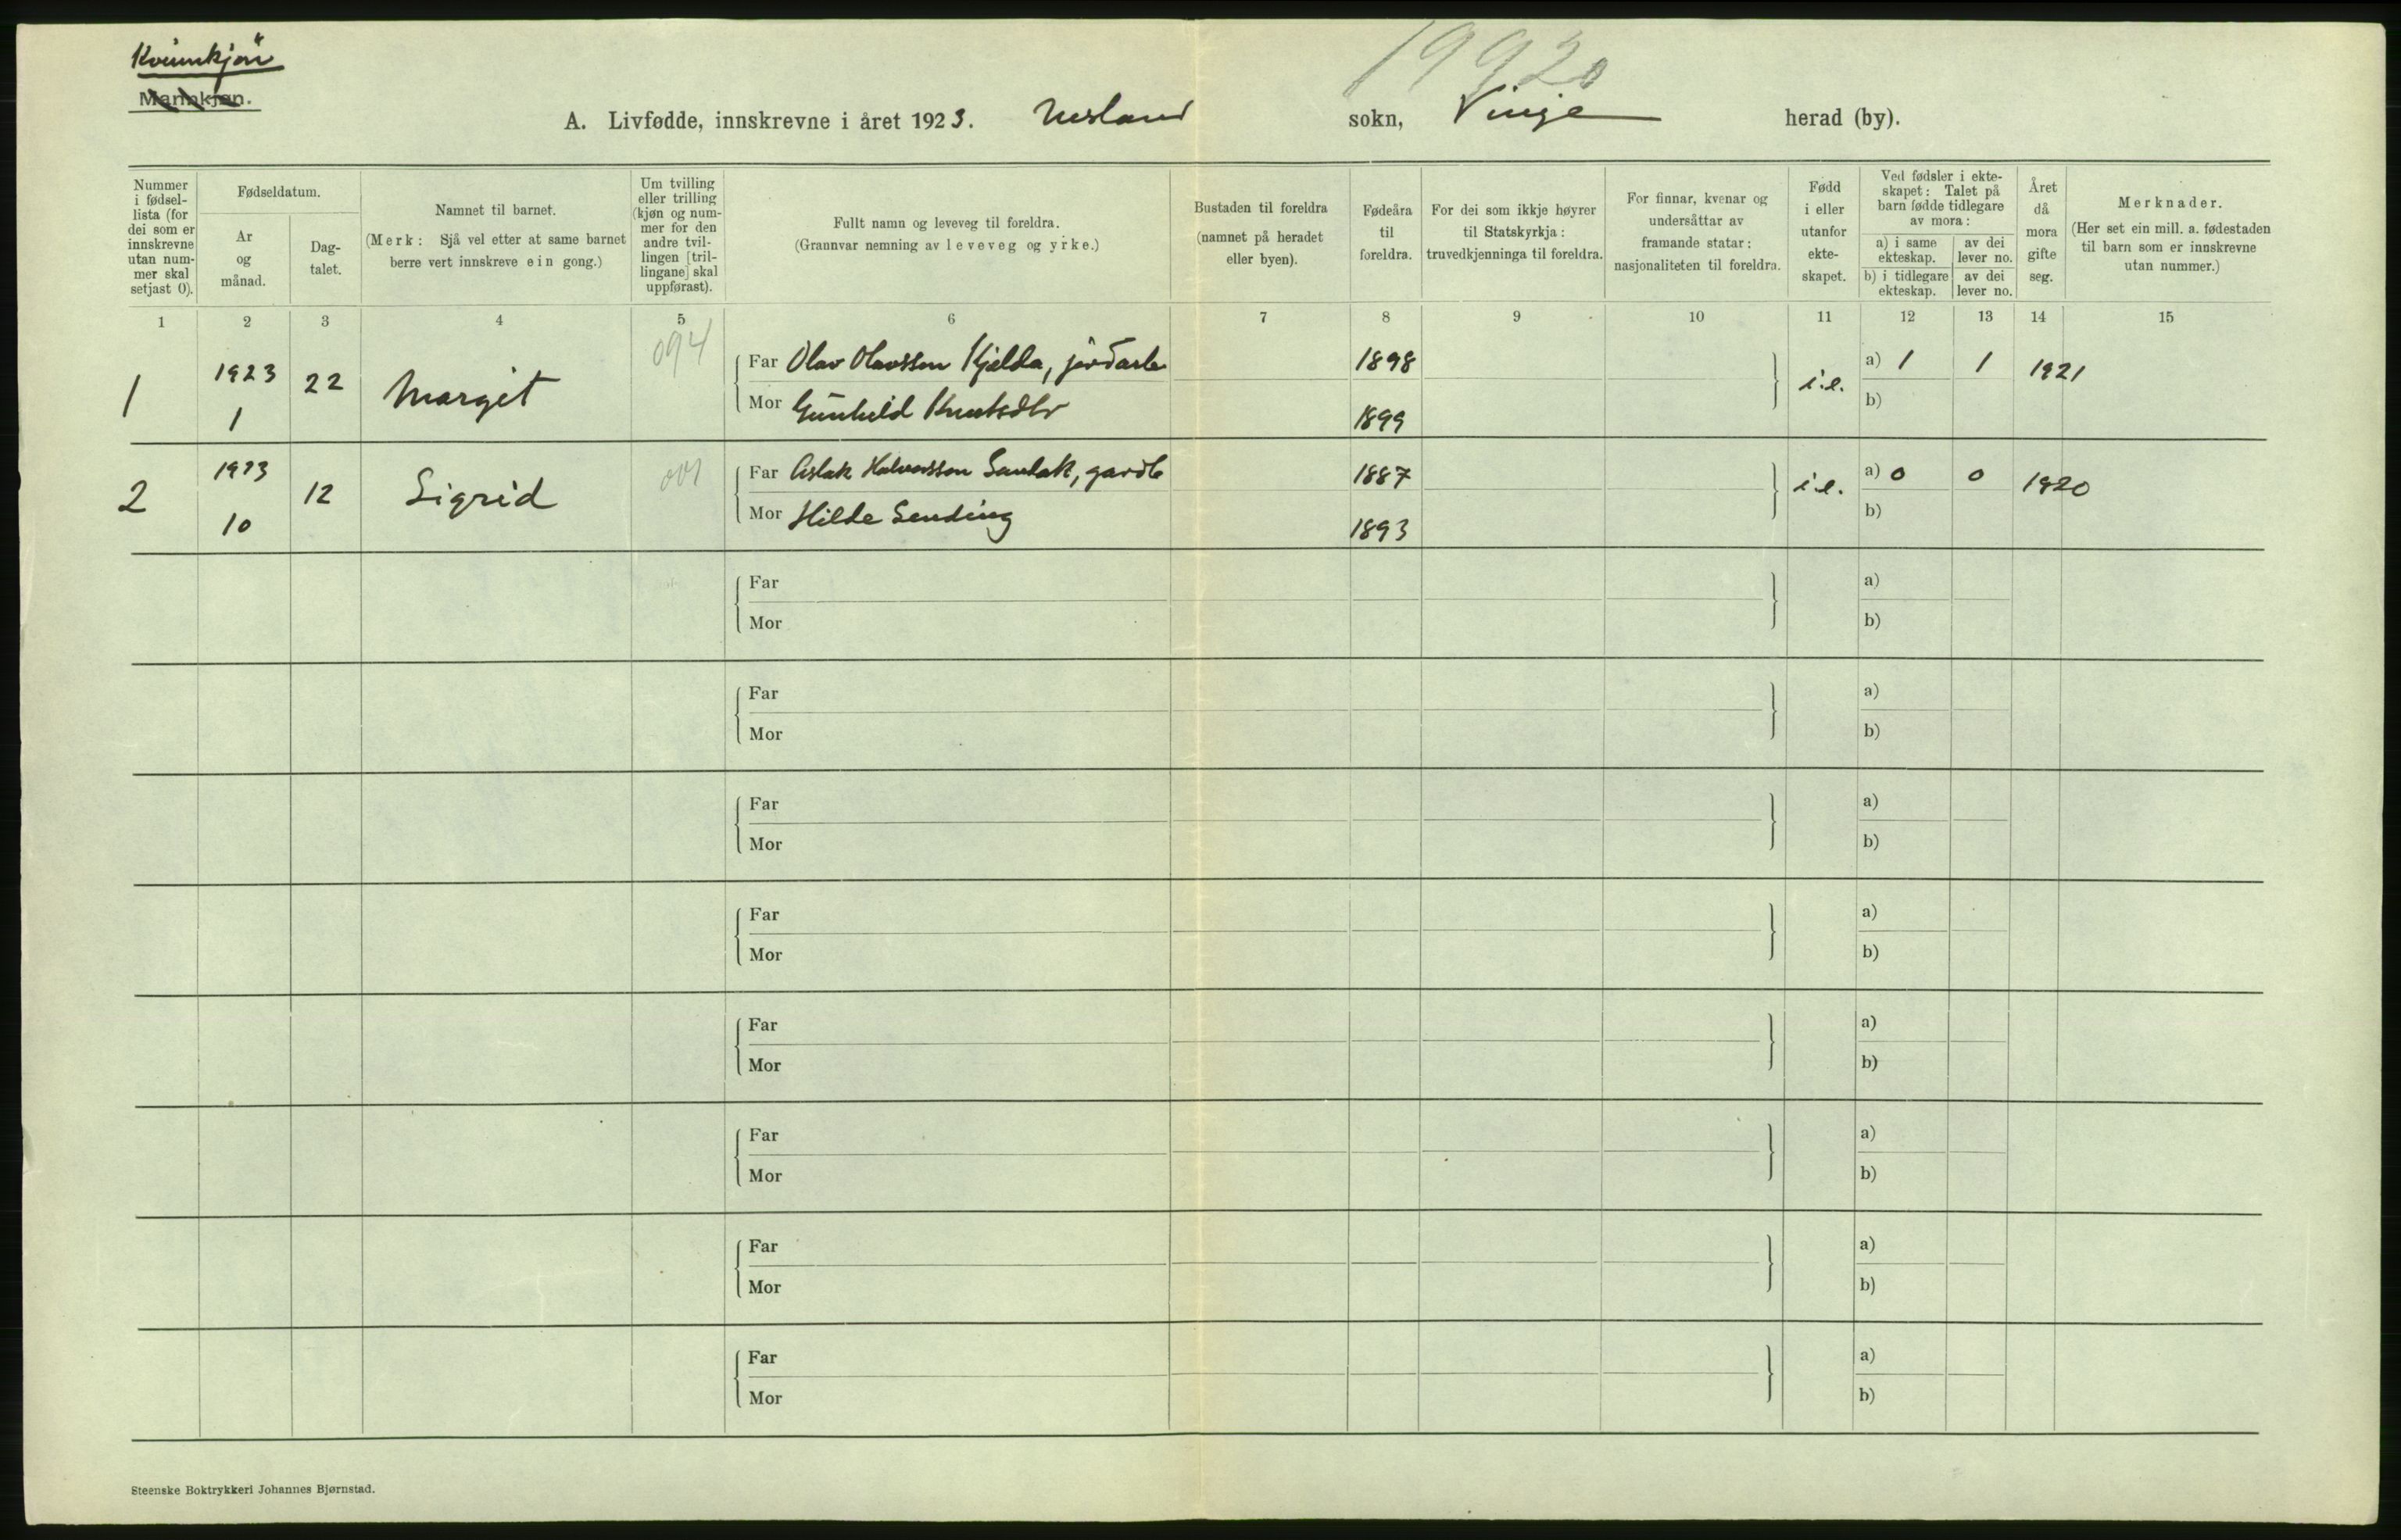 Kvinnkjön
Mannkjøn.
19920
A. Livfødde, innskrevne i året 1923. Nesland sokn, Vinje herad (by).
Nummer i fødsel-lista (for dei som er innskrevne utan num-mer skal setjast 0).
Fødseldatum.
Ar og månad.
Dag-talet.
Namnet til barnet.
(Merk: Sjå vel etter at same barnet berre vert innskreve ein gong.)
Um tvilling eller trilling (kjøn og num-mer for den andre tvil-lingen [tril-lingane] skal uppførast).
Fullt namn og leveveg til foreldra.
(Grannvar nemning av leveveg og yrke.)
Bustaden til foreldra (namnet på heradet eller byen).
Fødeåra til foreldra.
For dei som ikkje høyrer til Statskyrkja: truvedkjenninga til foreldra.
For finnar, kvenar og undersåttar av framande statar: nasjonaliteten til foreldra.
Fødd i eller utanfor ekte-skapet.
Ved fødsler i ekte-skapet: Talet på barn fødde tidlegare av mora:
a) i same ekteskap.
av dei lever no.
b) i tidlegare ekteskap.
av dei lever no.
Året då mora gifte seg.
Merknader.
(Her set ein mill. a. fødestaden til barn som er innskrevne utan nummer.)
1 2 3 4 5 6 7 8 9 10 11 12 13 14 15
094
1 1923 1 22 Margit
Far Olav Olavsson Kjelda, jordarb 1898 i.e. a) 1 1 1921
Mor Gunhild Knutsdtr 1899 b)
2 1923 10 12 Sigrid 001
Far Aslak Halvorsson Sandak, gardb 1887 i.e. a) 0 0 1920
Mor Hilde Sending 1893 b)
Far a)
Mor b)
Far a)
Mor b)
Far a)
Mor b)
Far a)
Mor b)
Far a)
Mor b)
Far a)
Mor b)
Far a)
Mor b)
Far a)
Mor b)
Steenske Boktrykkeri Johannes Bjørnstad.